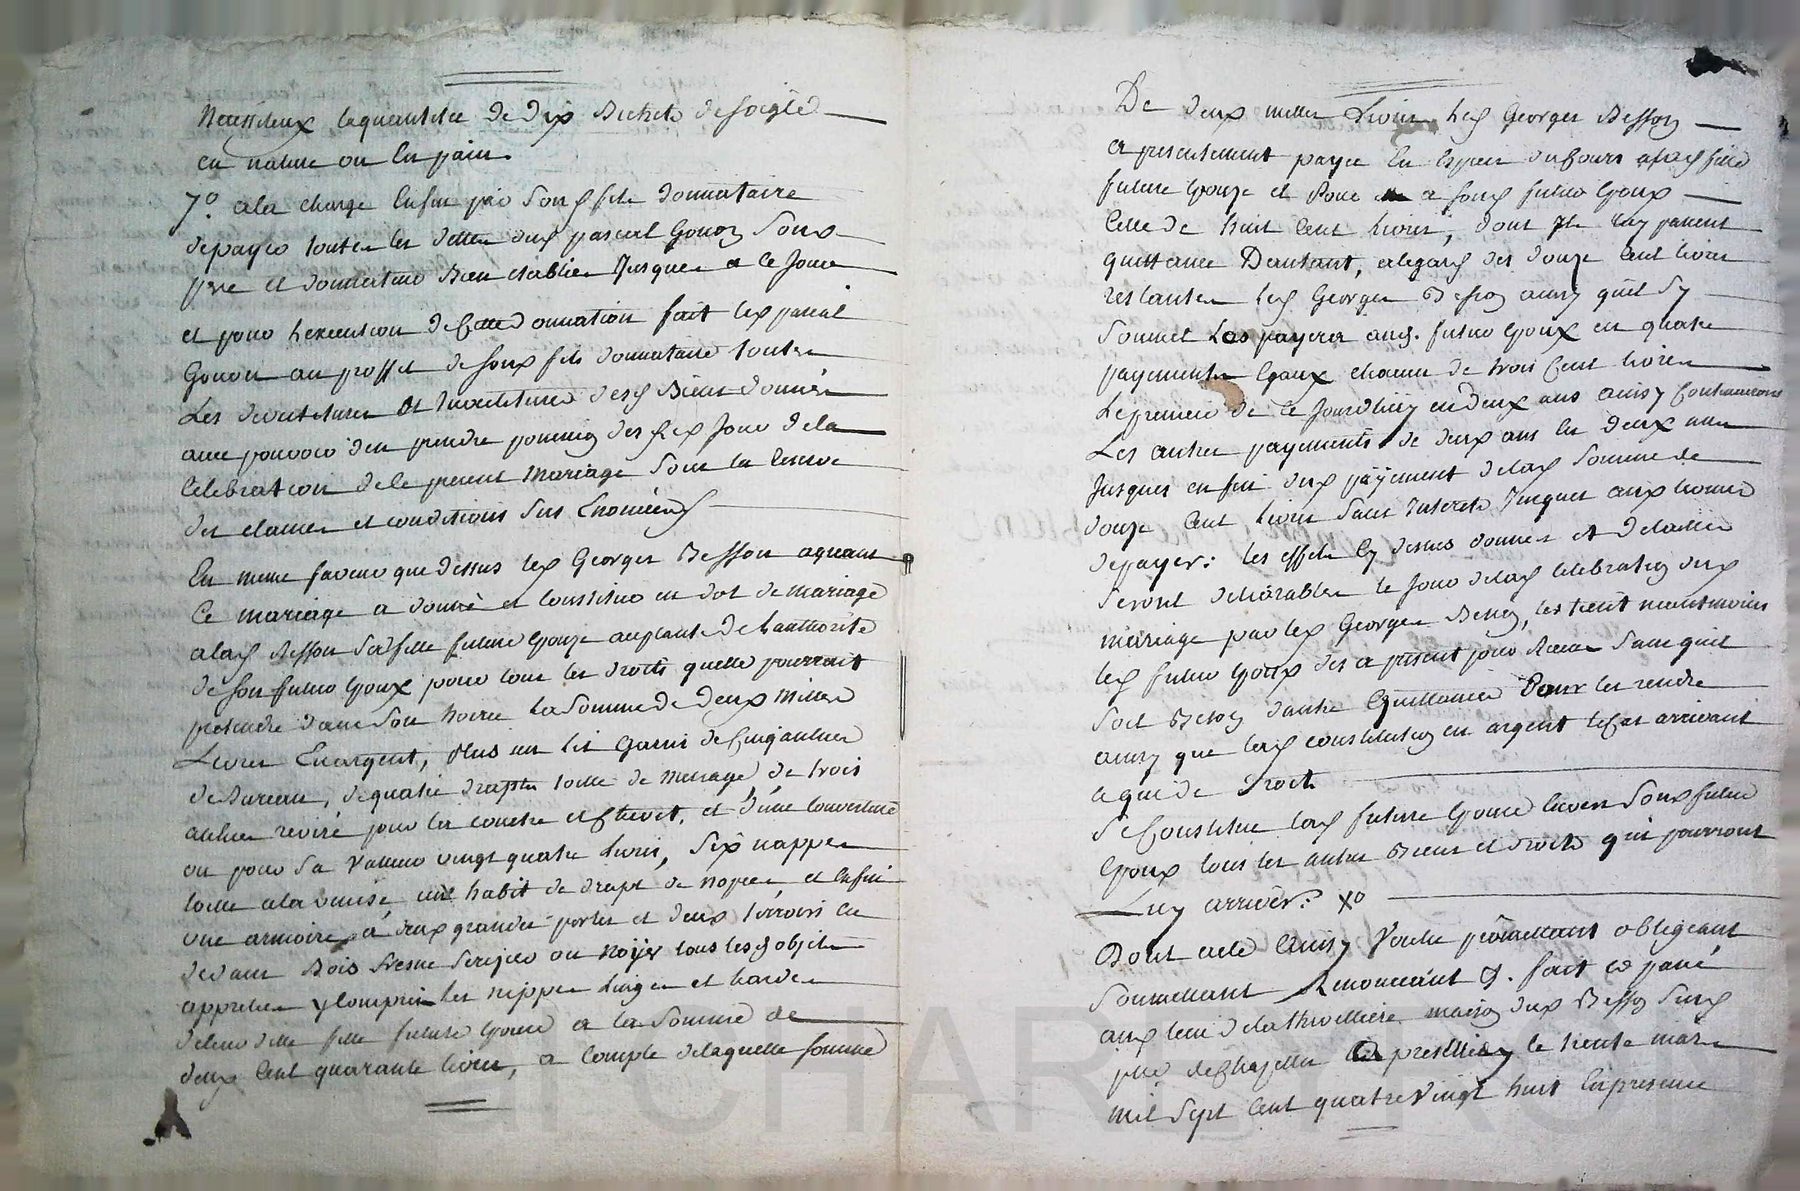 Necessiteux la quantité de dix Bichets de soigle
en nature ou en pain.
7.º a la charge enfin par son d fils donnataire
de payer toutes les dettes dud pascal Gonon son
pere et donnateur Bien etablies Jusques a ce Jour
et pour l'execution de cette donnation fait led pascal
Gonon au proffit de son d fils donnataire toutes
Les devestitures et Investitures desd Biens donnés
avec pouvoir d'en prendre possession des le d Jour de la
celebration de le present Mariage sous la reserve
des clauses et conditions sus Enoncées
En meme faveur que dessus led Georges Besson agreant
Ce mariage a donné et constitué en dot de mariage
a lad Besson sa fille future Epouze acceptante de l'authorité
de son futur Epoux pour tous les droits quelle pourrait
pretendre dans son hoirie La somme de deux Milles
Livres En argent, plus un lit Garni de
de Bureau, de quatre draps toille de menage de trois
aulnes pour la couetre et chevet, et d'une couverture
ou pour sa valleur vingt quatre livres, six nappes
toille a la venise un habit de drapt de noces, et enfin
une armoire a deux grandes portes et deux tirroirs au
devant Bois fresne Serizier ou noÿer tous lesd objets
appretiés y compris les nippes linges et hardes
de lad fille future Epouse a la somme de
deux cent quarante livres, a compte de laquelle somme
De deux milles Livres led Georges Besson
a presentement payé en especes du Cours a lad fille
future Epouze et Pour a son d futur Epoux
Celle de huit Cent livres, dont Ils luy passent
quittance D'autant, a legard des douze Cent livres
restantes led Georges Besson ainsy quil sy
soumet Les payera aud. futur Epoux en quatre
payements Egaux chacun de trois Cent livres
Le premier de ce Jourdhuy en deux ans ainsy Continueront
Les autres payements de deux ans en deux ans
Jusques en fin dud päyement de lad somme de
douze Cent livres sans Interets Jusques aux termes
de payer: les effets Cy dessus donnés et detaillés
seront delivrables le Jour de lad Celebration dud
mariage par led Georges Besson, les tient neantmoins
led futur Epoux des a present pour Recus sans quil
soit Besoin d'autre Quittance Pour les rendre
ainsy que lad constitution en argent le Cas arrivant
a qui de droit
Se Constitue lad future Epouse envers son d futur
Epoux tous les autres Biens et droits qui pourront
Luy arriver:
Dont acte Ainsy Voulu promettant obligeant
Soumettant Renonceant &. fait et passé
aux lieu de la thivelliere maison dud Besson Sur
le trente mars
mil sept Cent quatre Vingt huit En presence